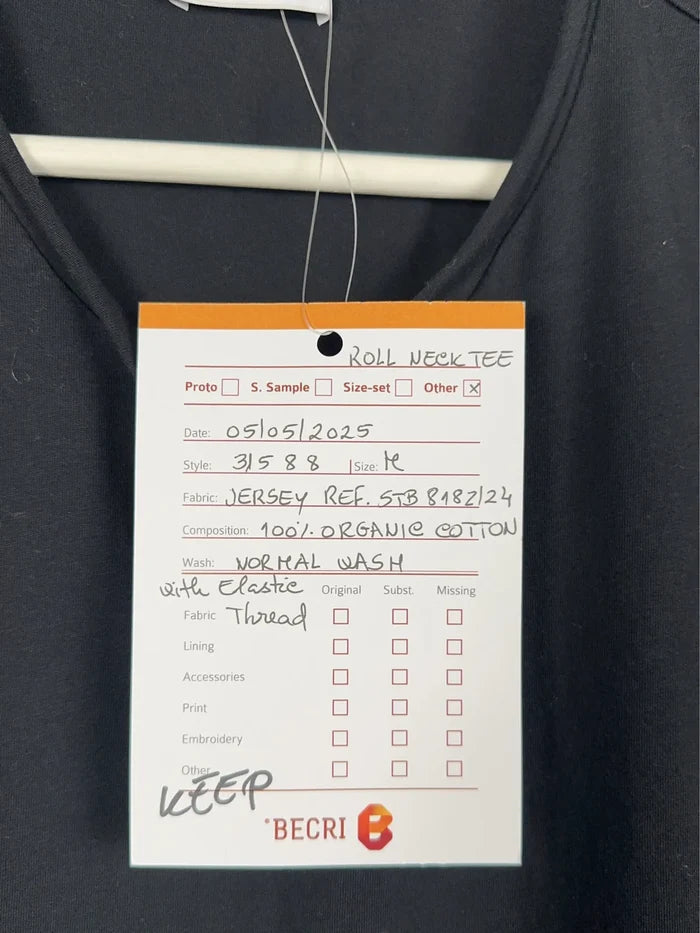 ROLL NECK TEE
Proto S. Sample Size-set Other X
Date: 05/05/2025
Style: 31588 Size: M
Fabric: JERSEY REF. STB 8182/24
Composition: 100% ORGANIC COTTON
Wash: NORMAL WASH
with Elastic Original Subst. Missing
Fabric Thread
Lining
Accessories
Print
Embroidery
Other
KEEP
BECRI